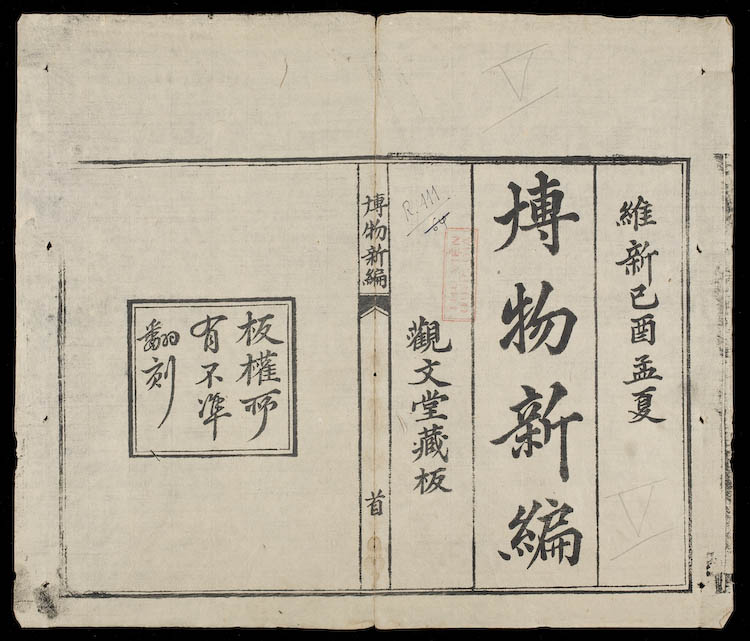 維新己酉孟夏
博物新編
觀文堂藏板
R.111
博物新編
首
板權所
有不準
翻刻